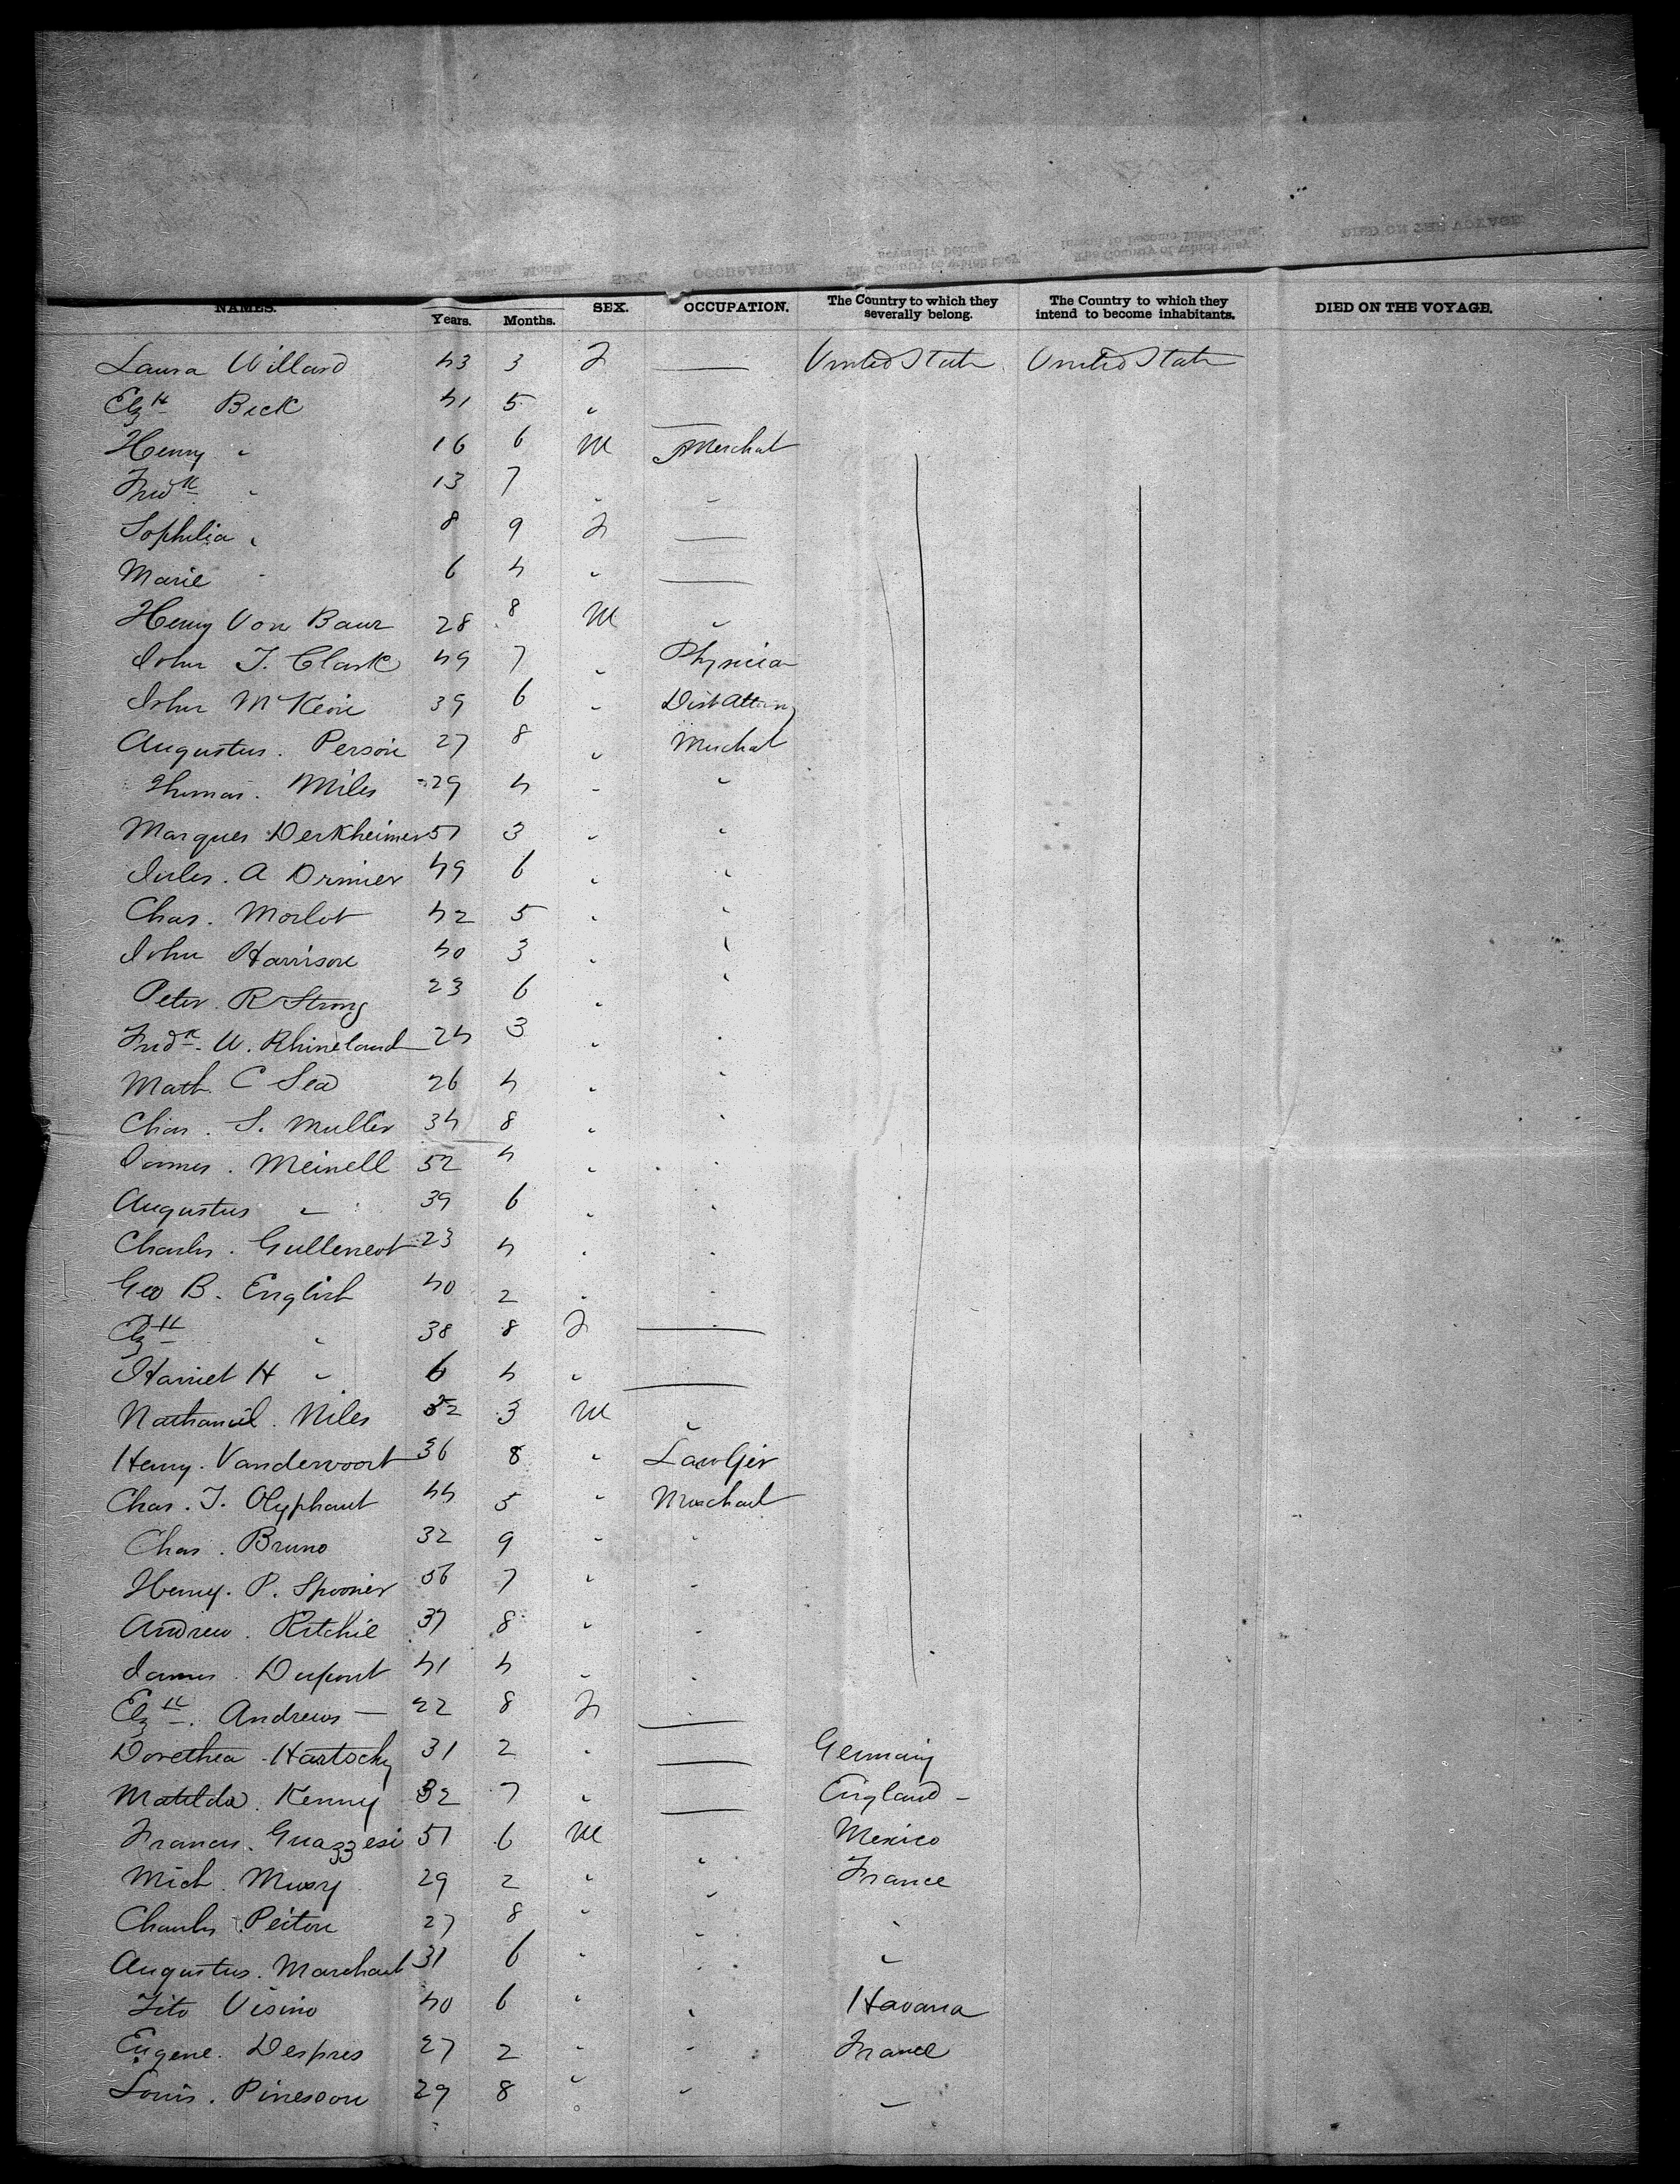 NAMES. Years. Months. SEX. OCCUPATION. The Country to which they severally belong. The Country to which they intend to become inhabitants. DIED ON THE VOYAGE.
Laura Willard 43 3 F — United State United State
Elzth Beck 41 5 "
Henry " 16 6 M Merchat
Fredk " 13 7 " "
Sophilia " 8 9 F —
Marie " 6 4 " —
Henry Von Baur 28 8 M "
John T. Clark 49 7 " Physicia
John McKeon 39 6 " Dist Attorny
Augustus. Person 27 8 " Merchat
Thomas. Miles 29 4 " "
Marques Derkheimer 51 3 " "
Jules. A Drinier 49 6 " "
Chas. Morlot 42 5 " "
John Harrison 40 3 " "
Peter. R Strong 23 6 " "
Fredk. W. Rhineland 24 3 " "
Math. C Lea 26 4 " "
Chas. S. Muller 34 8 " "
James. Meinell 52 4 " "
Augustus " 39 6 " "
Charles. Gullenent 23 4 " "
Geo B. English 40 2 " "
Elzth " 38 8 F —
Harriet H " 6 4 " —
Nathaniel. Niles 52 3 M "
Henry. Vandervoort 36 8 " Lawyer
Chas. T. Olyphant 44 5 " Merchant
Chas. Bruno 32 9 " "
Henry. P. Spooner 56 7 " "
Andrew. Ritchie 37 8 " "
James. Dupont 41 4 " "
Elzth. Andrews — 22 8 F —
Dorethea. Hartschy 31 2 " — Germany
Matilda. Kenny 32 7 " — England
Francis. Guazzesi 51 6 M " Mexico
Mich. Muxy 29 2 " " France
Charles. Peiton 27 8 " " "
Augustus. Marchant 31 6 " " "
Tito Visino 40 6 " " Havana
Eugene. Despres 27 2 " " France
Louis. Pinesson 29 8 " " "